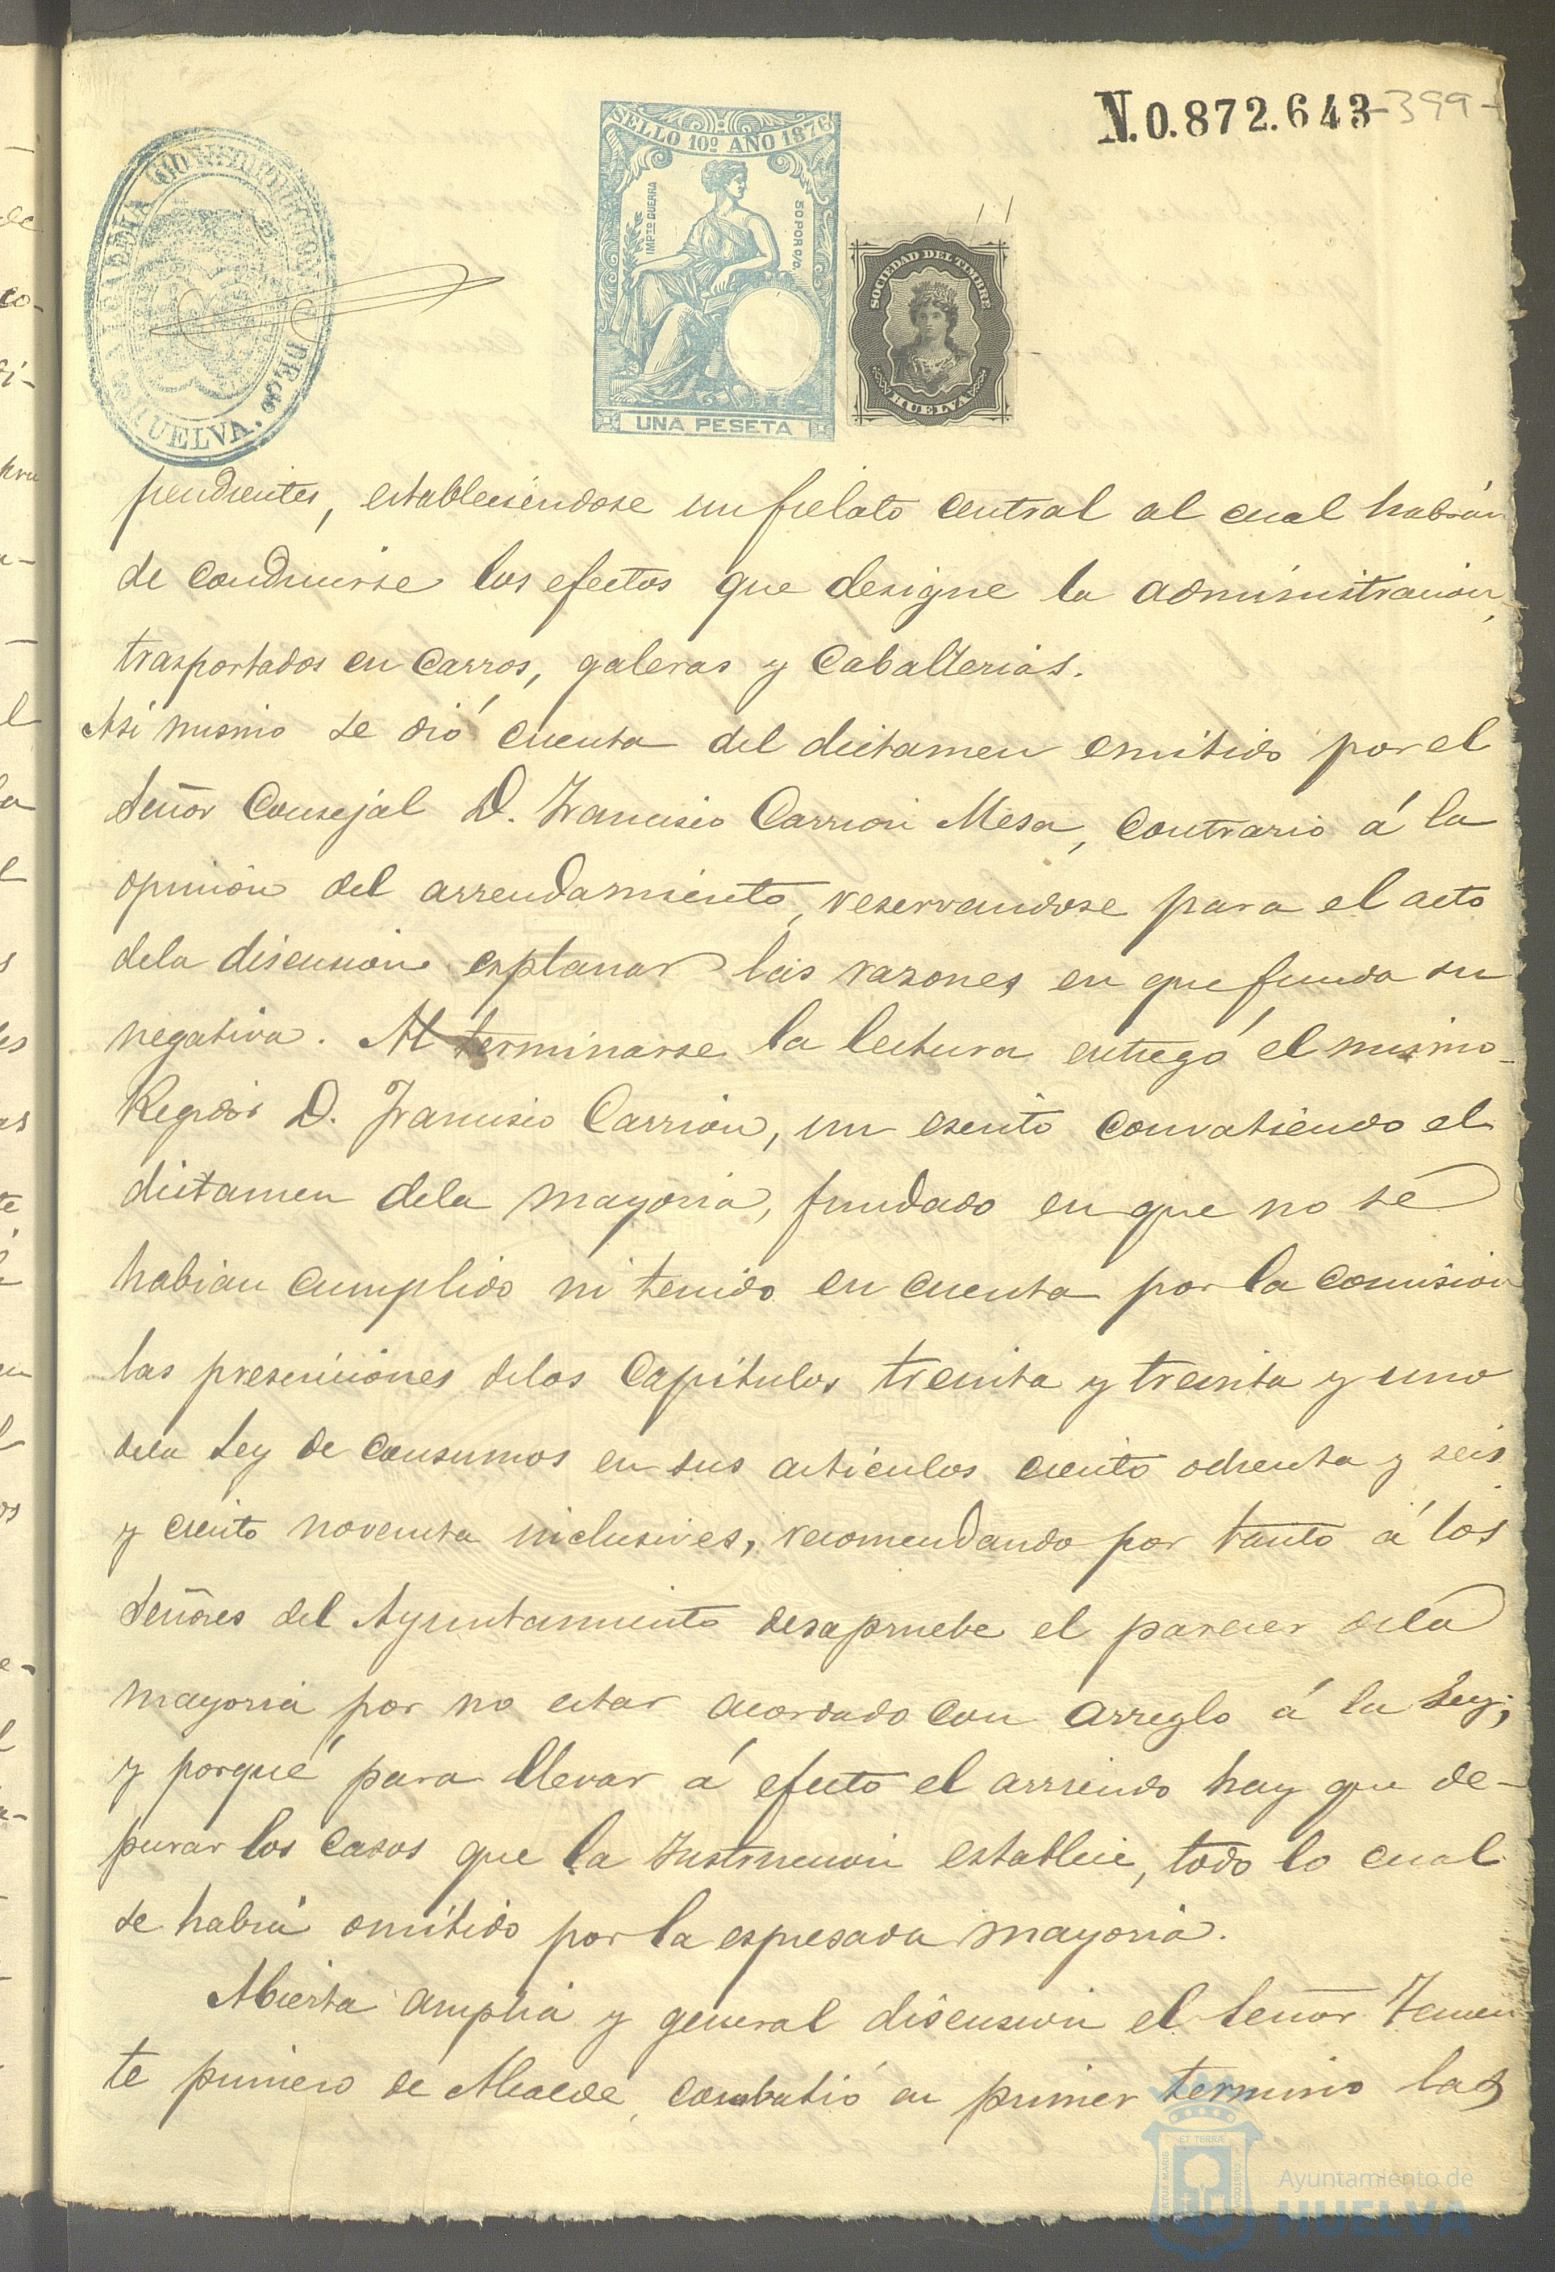 N.0.872.643
-399-
ALCALDIA CONSTITUCIONAL DE HUELVA.
SELLO 10º AÑO 1876
IMPTO GUERRA
50 POR C/O.
UNA PESETA
SOCIEDAD DEL TIMBRE
HUELVA
pendientes, estableciendose un fielato central al cual habrán
de conducirse los efectos que designe la administracion,
trasportados en carros, galeras y caballerias.
Asi mismo se dió cuenta del dictamen emitido por el
Señor Consejal D. Francisco Carrion Mesa, contrario á la
opinion del arrendamiento, reservandose para el acto
dela discusion esplanar las razones en que funda su
negativa. Al terminarse la lectura entregó el mismo
Regidor D. Francisco Carrion, un escrito convatiendo el
dictamen dela mayoria, fundado en que no se
habian cumplido ni tenido en cuenta por la comision
las prescriciones delos Capitulos treinta y treinta y uno
dela Ley de consumos en sus articulos ciento ochenta y seis
y ciento noventa inclusives, recomendando por tanto á los
Señores del Ayuntamiento desapruebe el parecer dela
mayoria por no estar acordado con arreglo á la Ley;
y porque para llevar á efecto el arriendo hay que de-
purar los casos que la Instruccion establece, todo lo cual
se habia omitido por la espresada mayoria.
Abierta amplia y general discusion el señor Tenien
te primero de Alcalde, combatió en primer termino las
ET TERRÆ
Ayuntamiento de
HUELVA